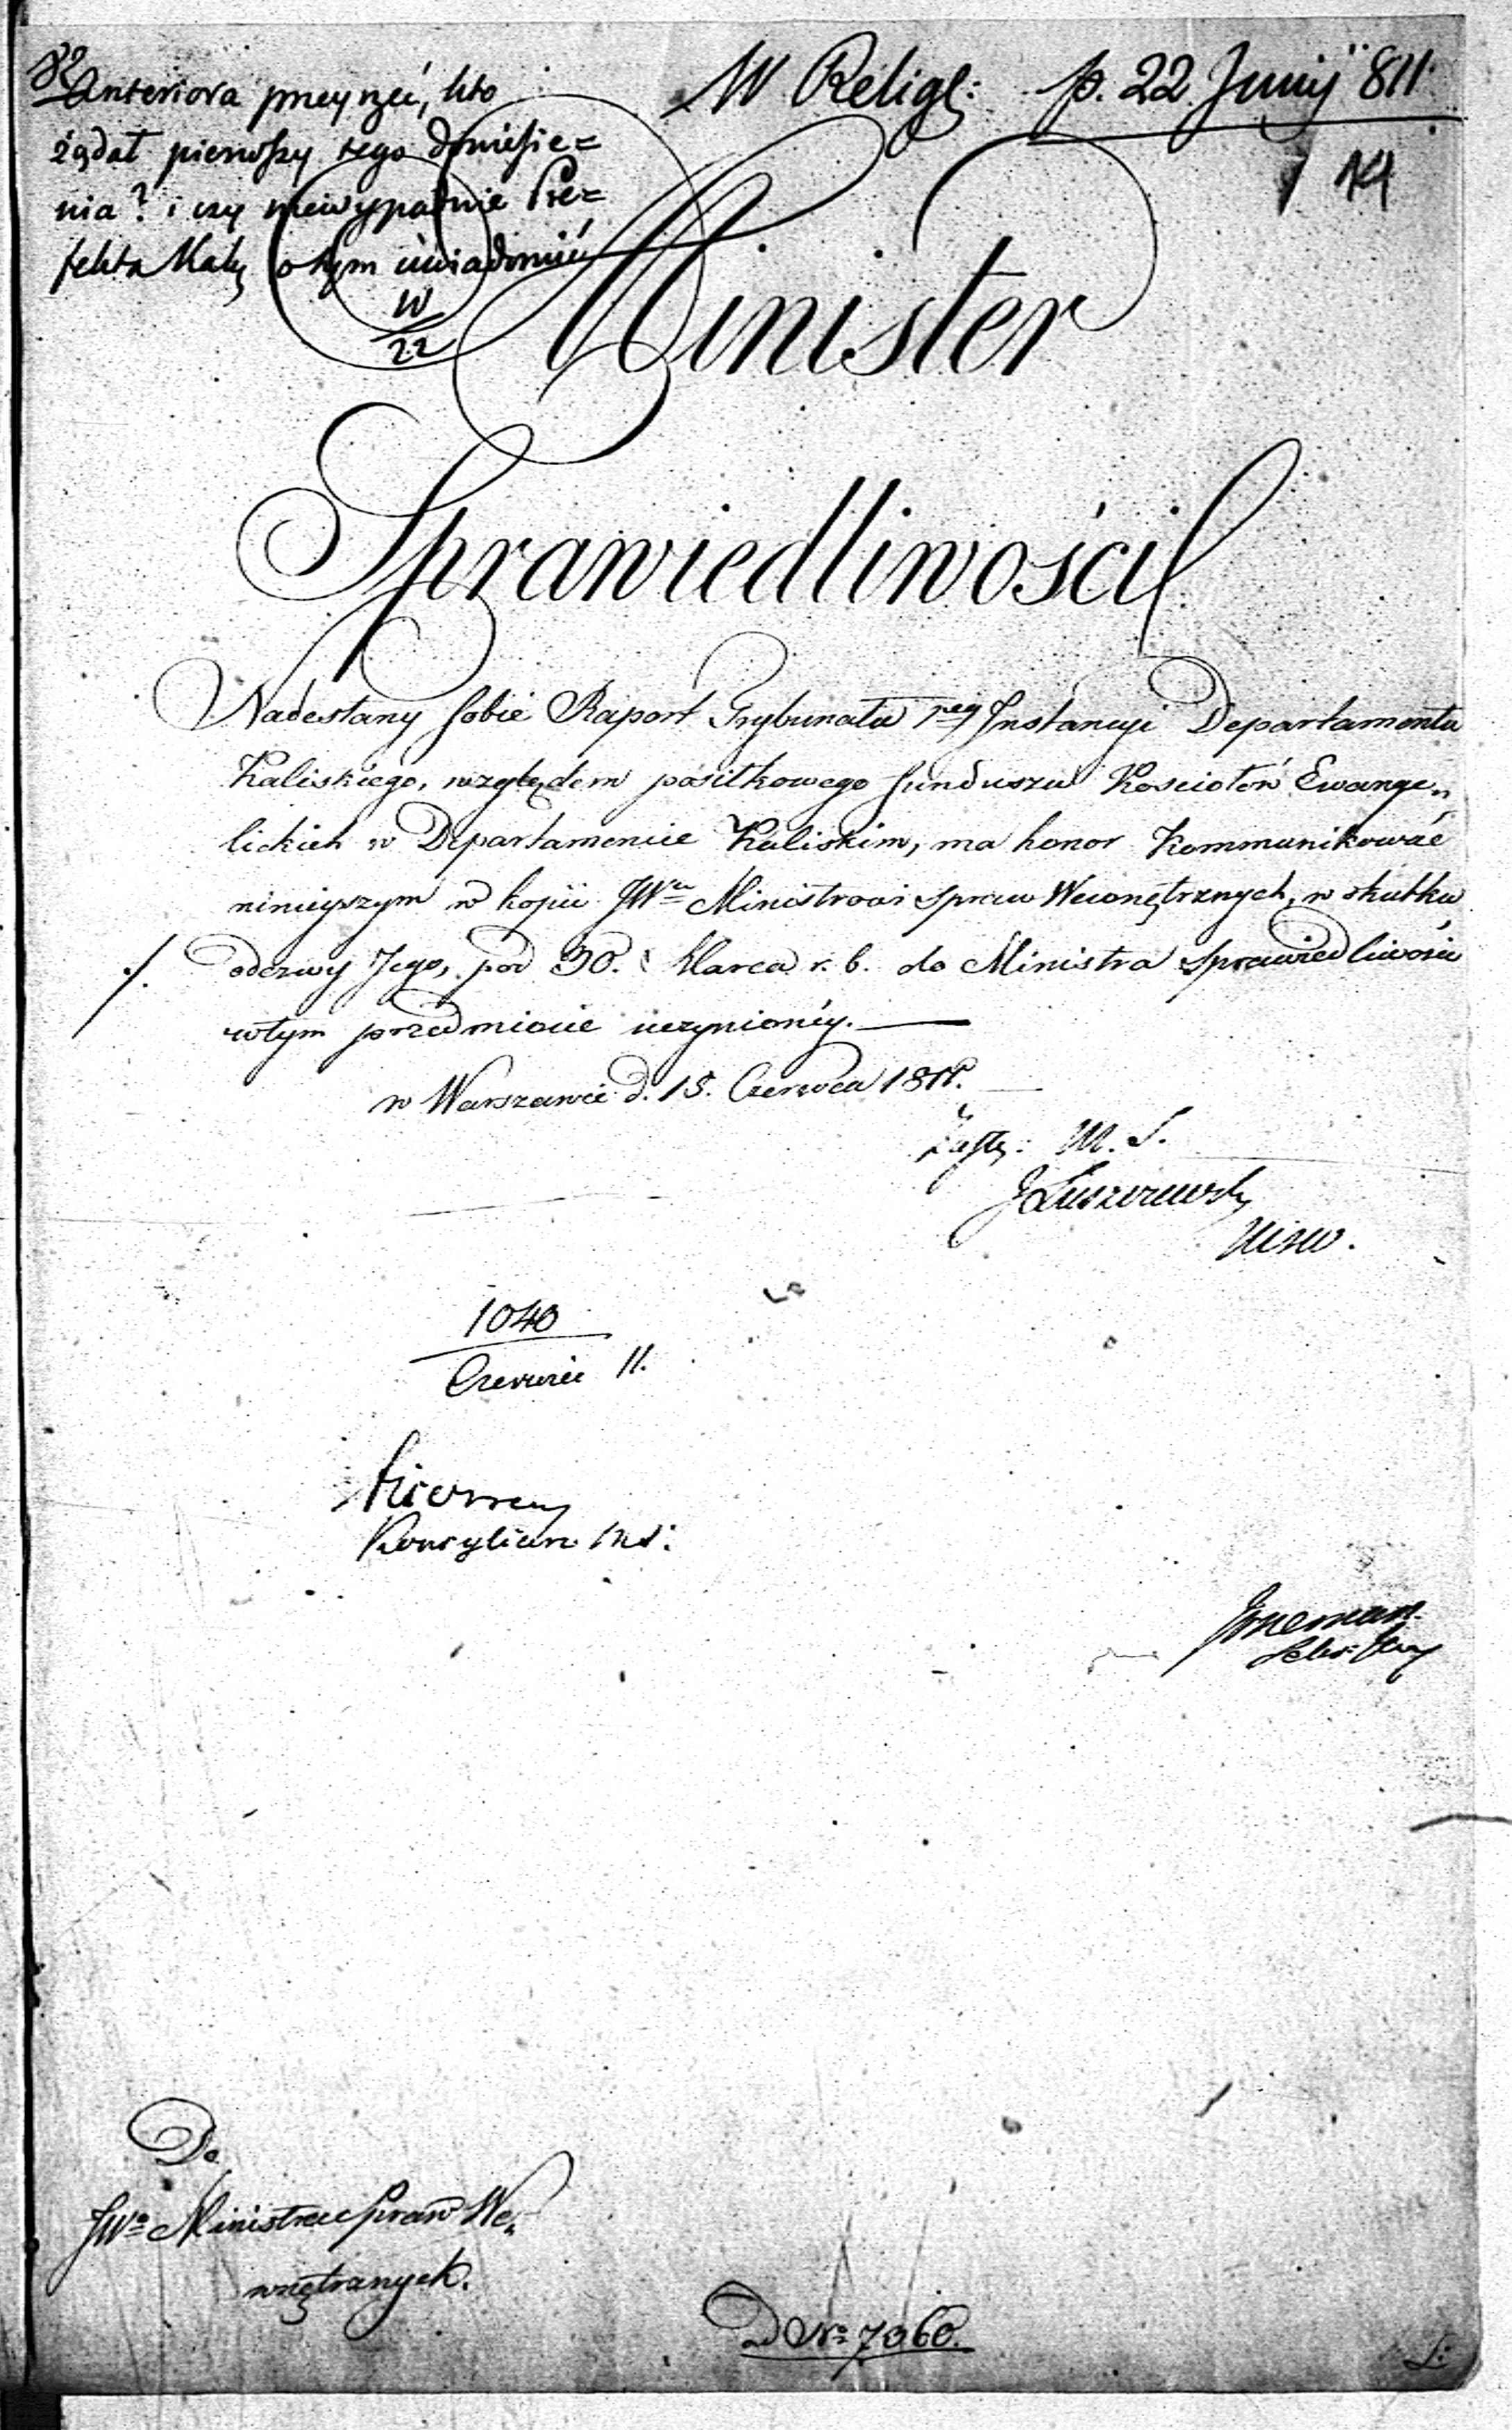 Anteriora przeyrzeć, kto
żądał pierwszy tego doniesie=
nia? i czy niewypadnie Pre=
fekta Kal. o tym uwiadomić
W
22
W Relig: p. 22 Junij 811.
14
Minister
Sprawiedliwości
Nadesłany sobie Raport Trybunału 1ey Instancyi Departamentu
Kaliskiego, względem posiłkowego funduszu Kościołów Ewange„
lickich w Departamencie Kaliskim, ma honor kommunikować
ninieyszym w kopii JWu Ministrowi Spraw Wewnętrznych, w skutku
./. odezwy Jego, pod 30. Marca r. b. do Ministra Sprawiedliwości
w tym przedmiocie uczynioney.
w Warszawie d. 15. Czerwca 1811.
Zastę: M. S.
J Łuszczewski
1040
Czerwiec 11.
Konsyliarz
Do
JWo Ministra Spraw We„
wnętrznych.
ad No 7060.